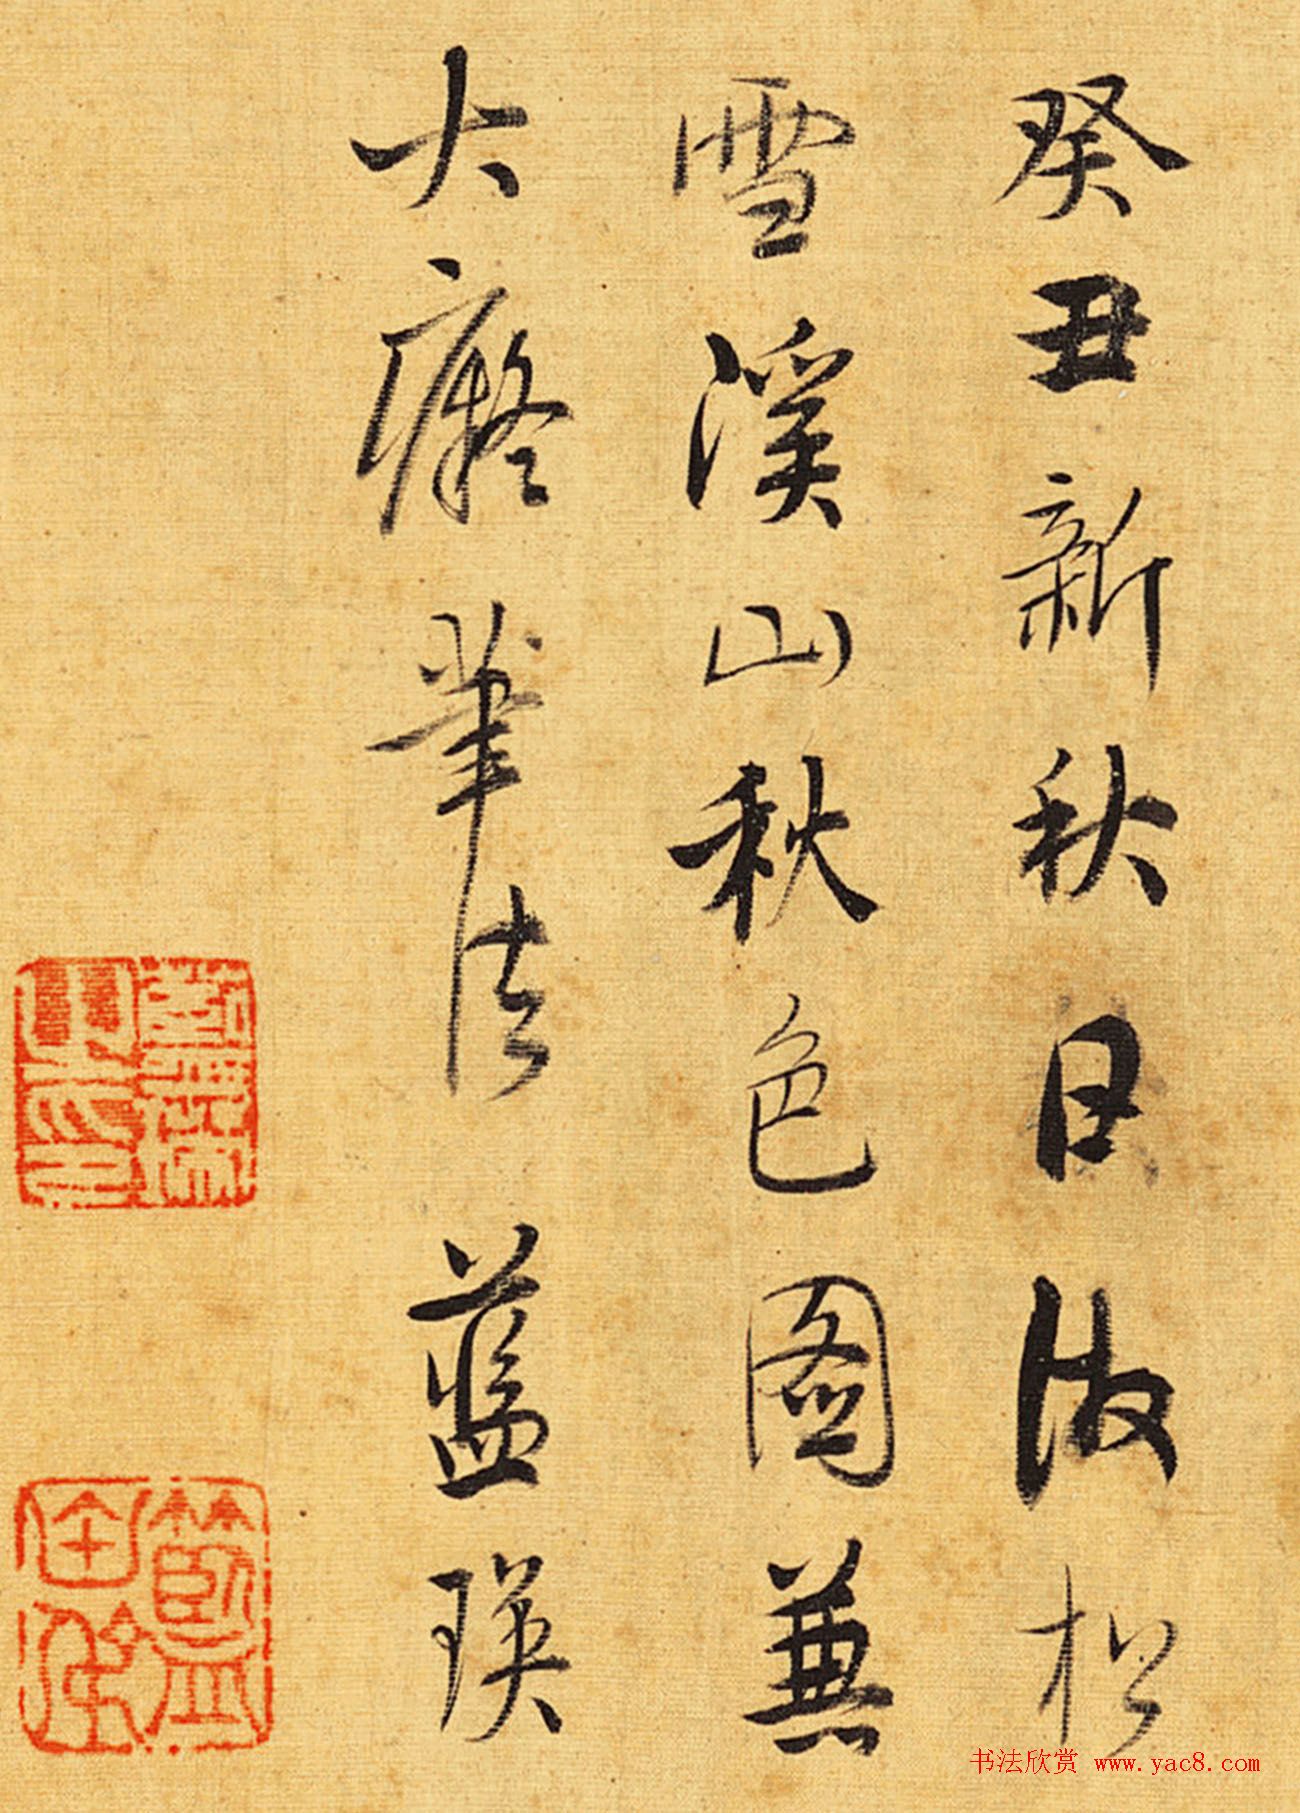 癸丑新秋日倣松
雪溪山秋色图兼
大癡筆法 藍瑛
书法欣赏 www.yac8.com